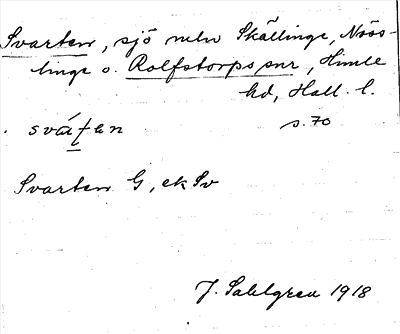 Svarten, sjö mlm Skällinge, Nös-
linge o. Rolfstorps snr, Himle
hd, Hall. l.
svátan s. 70
Svarten G, ek Sv
J. Sahlgren 1918